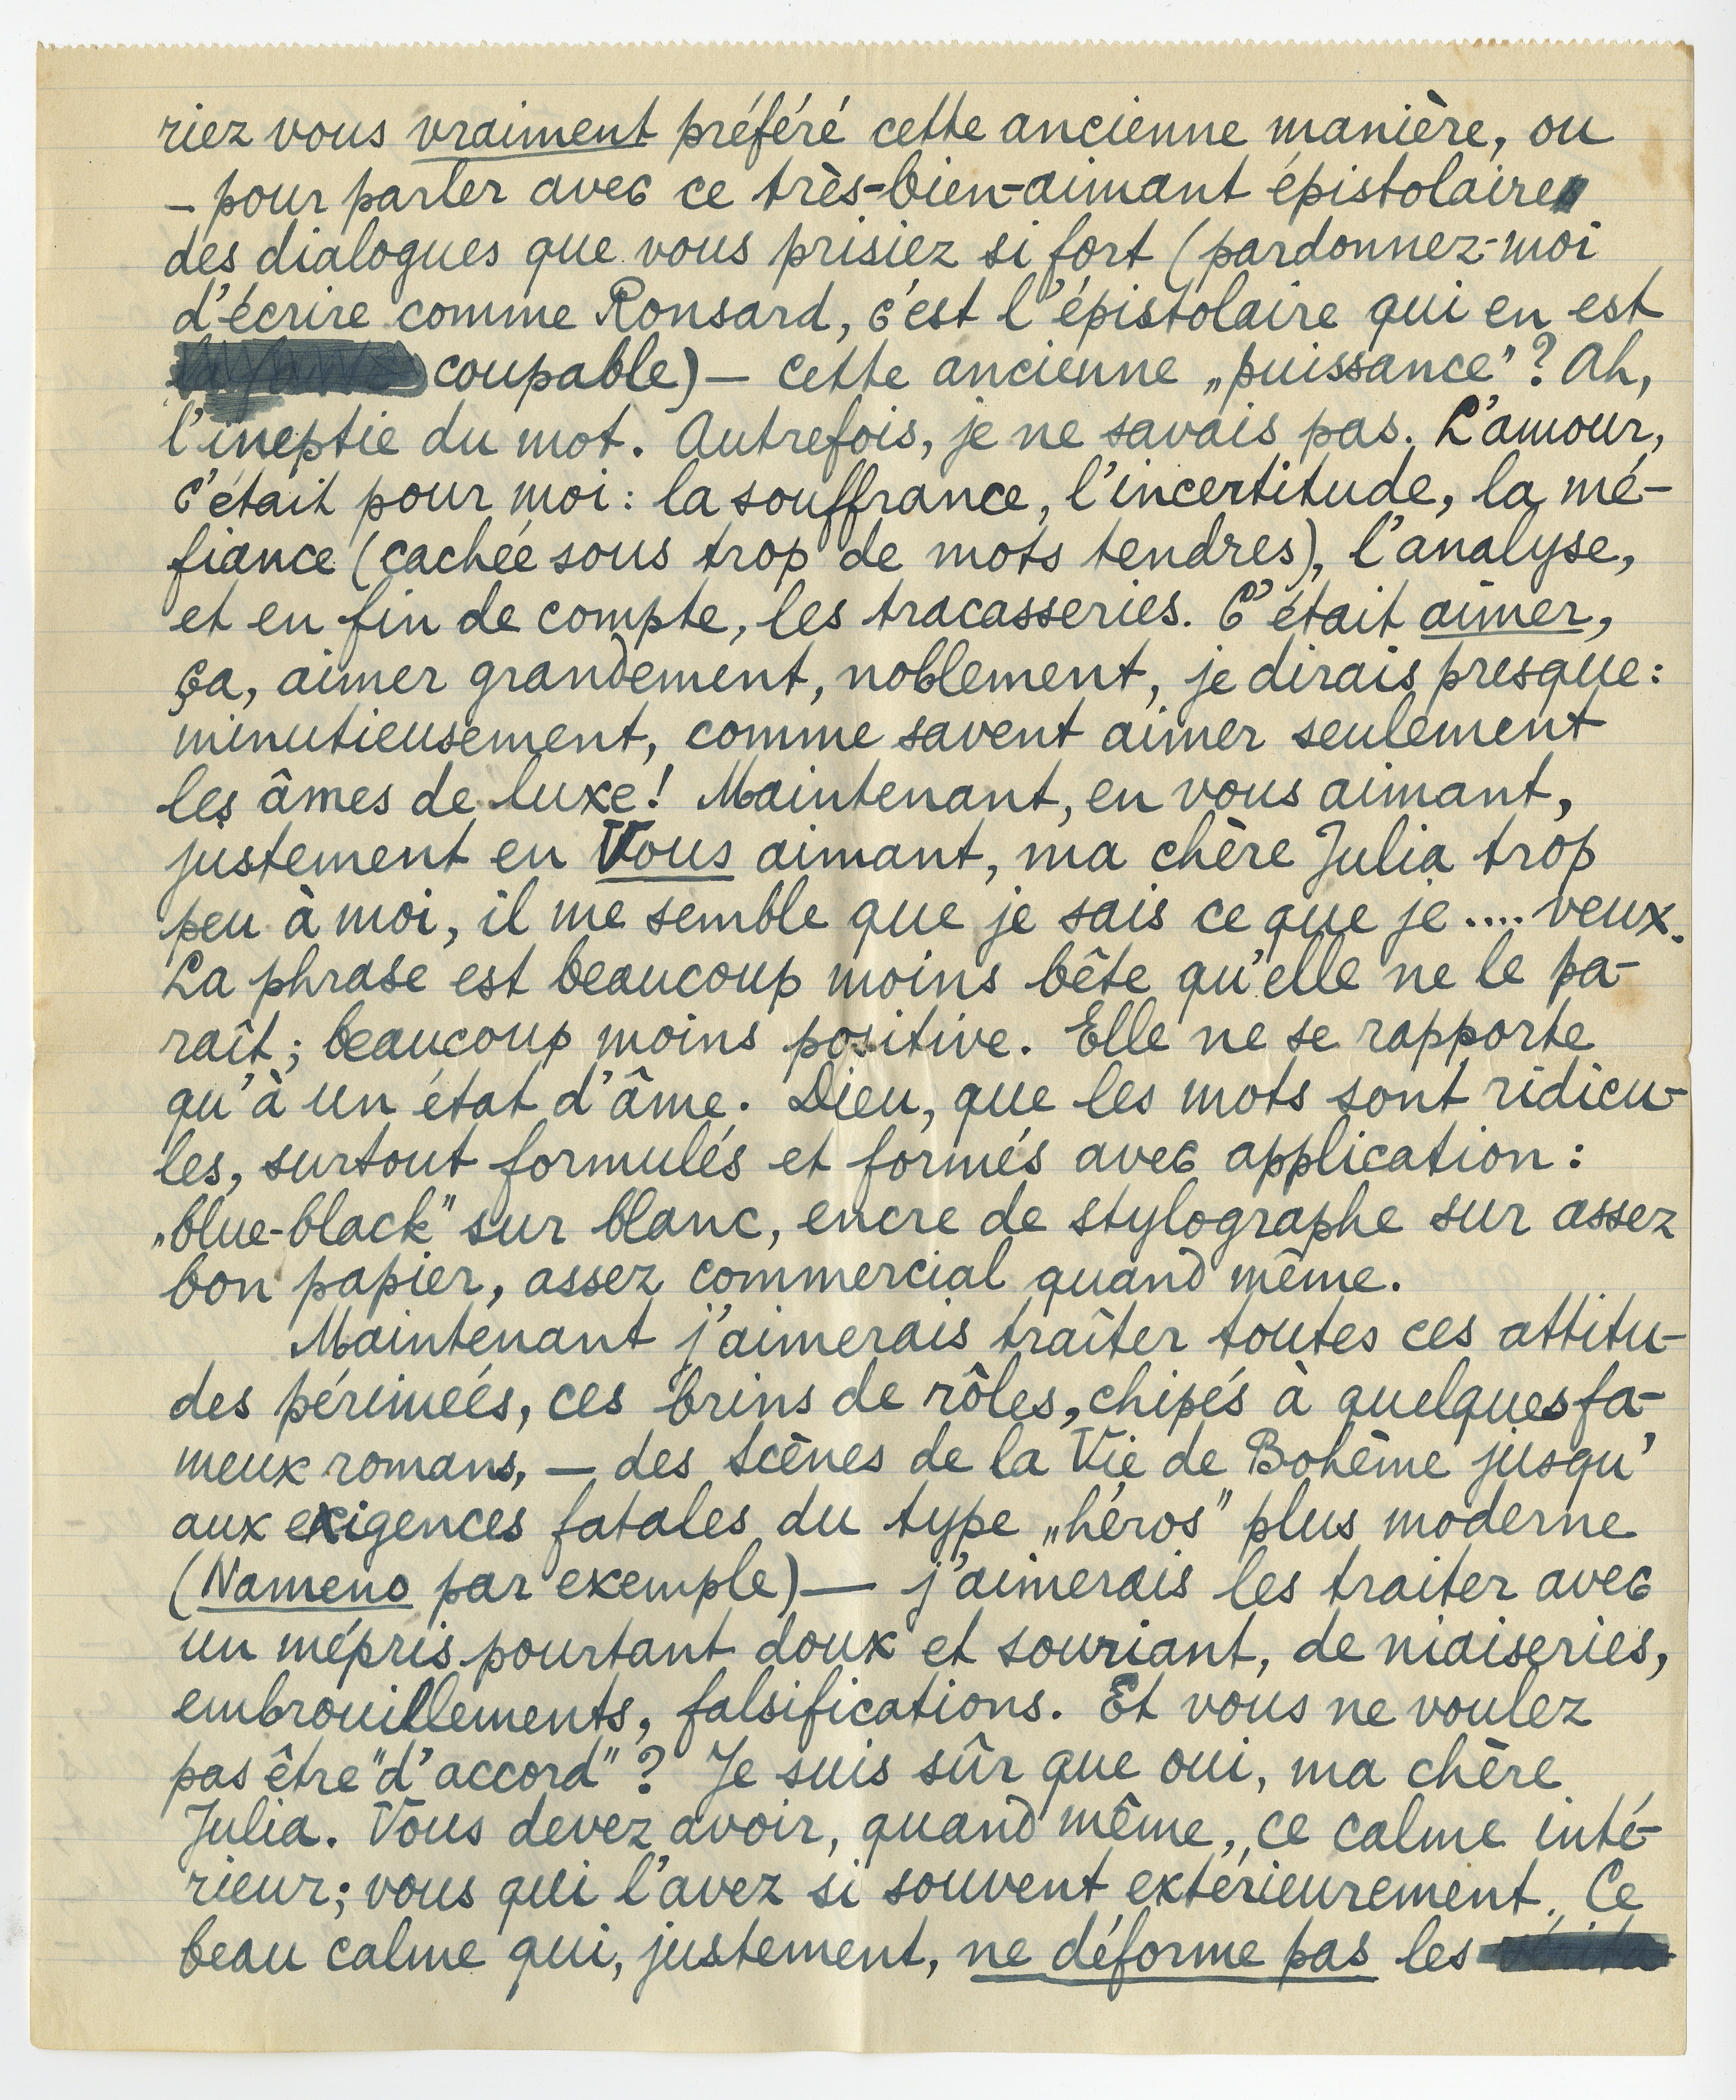 riez vous vraiment préféré cette ancienne manière, ou
– pour parler avec ce très-bien-aimant épistolaire
des dialogues que vous prisiez si fort (pardonnez-moi
d'écrire comme Ronsard, c'est l'épistolaire qui en est
coupable) – cette ancienne „puissance"? Ah,
l'ineptie du mot. Autrefois, je ne savais pas. L'amour,
c'était pour moi: la souffrance, l'incertitude, la mé-
fiance (cachée sous trop de mots tendres), l'analyse,
et en fin de compte, les tracasseries. C'était aimer,
ça, aimer grandement, noblement, je dirais presque:
minutieusement, comme savent aimer seulement
les âmes de luxe! Maintenant, en vous aimant,
justement en Vous aimant, ma chère Julia trop
peu à moi, il me semble que je sais ce que je .... veux.
La phrase est beaucoup moins bête qu'elle ne le pa-
raît; beaucoup moins positive. Elle ne se rapporte
qu'à un état d'âme. Dieu, que les mots sont ridicu-
les, surtout formulés et formés avec application:
„blue-black" sur blanc, encre de stylographe sur assez
bon papier, assez commercial quand même.
Maintenant j'aimerais traîter toutes ces attitu-
des périmeés, ces brins de rôles, chipés à quelques fa-
meux romans, – des Scènes de la Vie de Bohême jusqu'
aux exigences fatales du type „héros" plus moderne
(Nameno par exemple) – j'aimerais les traiter avec
un mépris pourtant doux et souriant, de niaiseries,
embrouillements, falsifications. Et vous ne voulez
pas être "d'accord"? Je suis sûr que oui, ma chère
Julia. Vous devez avoir, quand même, ce calme inté-
rieur; vous qui l'avez si souvent extérieurement. Ce
beau calme qui, justement, ne déforme pas les